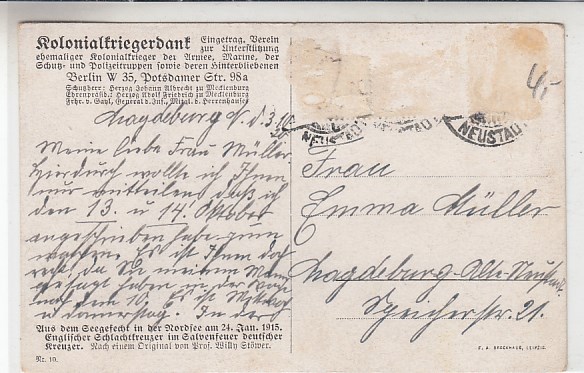 Kolonialkriegerdank Eingetrag. Verein
zur Unterstützung
ehemaliger Kolonialkrieger der Armee, Marine, der
Schutz- und Polizeitruppen sowie deren Hinterbliebenen
Berlin W 35, Potsdamer Str. 98a
Schutzherr: Herzog Johann Albrecht zu Mecklenburg
Ehrenpräsid.: Herzog Adolf Friedrich zu Mecklenburg
Frhr. v. Gayl, General d. Inf., Mitgl. d. Herrenhauses
Magdeburg
Meine liebe Frau Müller
hierdurch wollte ich Ihnen
nur mitteilen daß ich
den 13. u 14. Oktober
angeschrieben habe zum
Es ist Ihnen doch
recht, da Sie meinem Mann
gesagt haben in der
den 10. Es ist Mittwoch
u Donnerstag. In der
Aus dem Seegefecht in der Nordsee am 24. Jan. 1915.
Englischer Schlachtkreuzer im Salvenfeuer deutscher
Kreuzer. Nach einem Original von Prof. Willy Stöwer.
Nr. 10.
NEUSTADT
NEUSTADT
Frau
Emma Müller
Magdeburg-Alte-Neustadt
Speicherstr. 21.
F. A. BROCKHAUS, LEIPZIG.